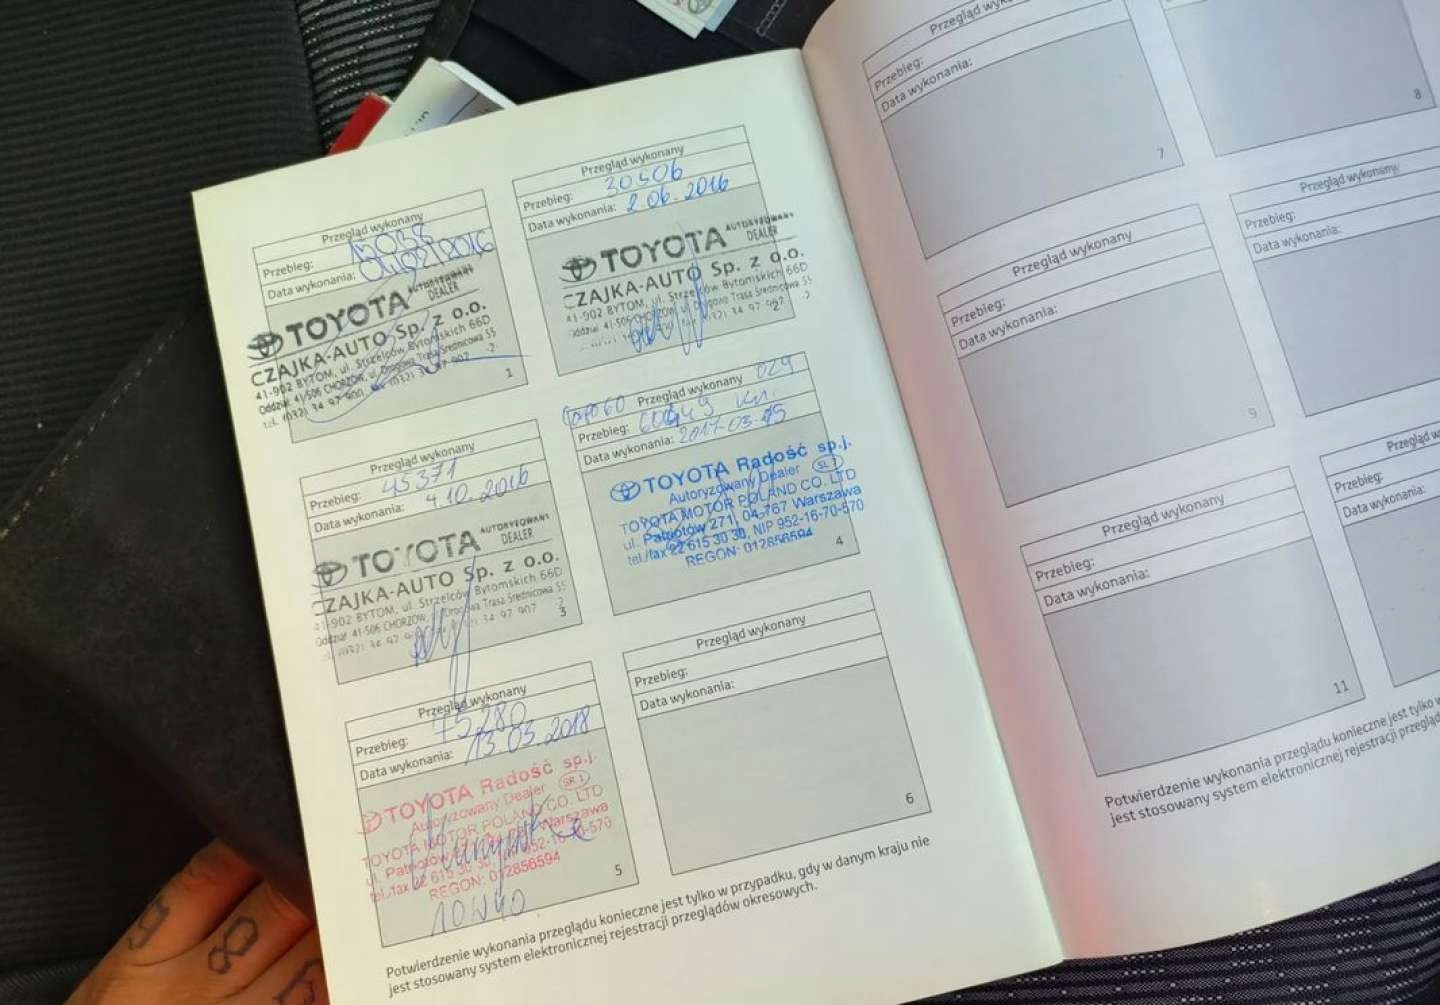 Przegląd wykonany
Przebieg:
Data wykonania: 2016
TOYOTA AUTORYZOWANY DEALER
CZAJKA-AUTO Sp. z o.o.
41-902 BYTOM, ul. Strzelców Bytomskich 66D
Oddział 41-506 CHORZÓW, ul. Drogowa Trasa Średnicowa 55
tel. (032) 34 97 900 (032) 34 97 907
1
Przegląd wykonany
Przebieg: 30506
Data wykonania: 2.06.2016
TOYOTA AUTORYZOWANY DEALER
CZAJKA-AUTO Sp. z o.o.
41-902 BYTOM, ul. Strzelców Bytomskich 66D
Oddział 41-506 CHORZÓW, ul. Drogowa Trasa Średnicowa 55
34 97 907
2
Przegląd wykonany
Przebieg: 45371
Data wykonania: 4.10.2016
TOYOTA AUTORYZOWANY DEALER
CZAJKA-AUTO Sp. z o.o.
41-902 BYTOM, ul. Strzelców Bytomskich 66D
Oddział 41-506 CHORZÓW, Drogowa Trasa Średnicowa 55
(032) 34 97 34 97 907
3
Przegląd wykonany 029
Przebieg:
Data wykonania: 2017-03-15
TOYOTA Radość sp.j.
Autoryzowany Dealer SR 1
TOYOTA MOTOR POLAND CO. LTD
ul. Patriotów 271, 04-767 Warszawa
tel./fax 22 615 30 30, NIP 952-16-70-570
REGON: 012856594
4
Przegląd wykonany
Przebieg: 75280
Data wykonania: 13.03.2018
TOYOTA Radość sp.j.
Autoryzowany Dealer SR 1
TOYOTA MOTOR POLAND CO. LTD
ul. Patriotów Warszawa
tel./fax 22 615 30 30, 952-16-70-570
REGON: 012856594
10W40
5
Przegląd wykonany
Przebieg:
Data wykonania:
6
Potwierdzenie wykonania przeglądu konieczne jest tylko w przypadku, gdy w danym kraju nie
jest stosowany system elektronicznej rejestracji przeglądów okresowych.
Przegląd
Przebieg:
Data wykonania:
7
8
Przegląd wykonany
Przebieg:
Data wykonania:
9
Przegląd wykonany
Przebieg:
Data wykonania:
Przegląd wykonany
Przebieg:
Data wykonania:
11
Przegląd
Przebieg:
Data wykonania:
Potwierdzenie wykonania przeglądu konieczne jest tylko w
jest stosowany system elektronicznej rejestracji